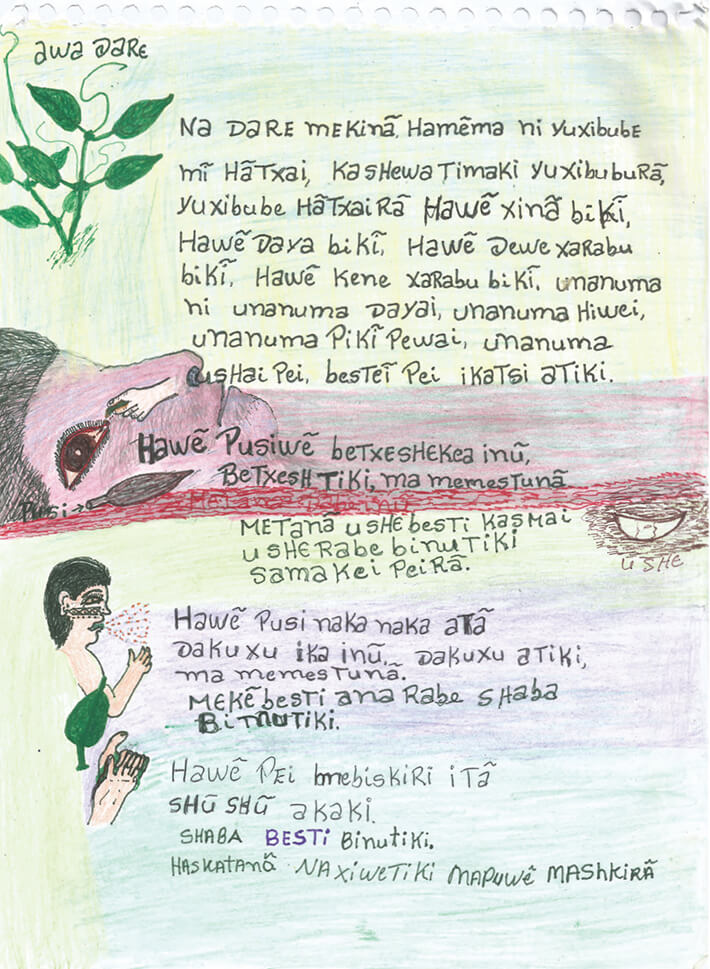 awa DaRE
Na DaRE mEKinã, Hamẽma ni yuxibube
mĩ Hãtxai, KasHEwatimaki yuxibuburã,
yuxibube Hãtxairã Hawẽ xinã bikĩ,
Hawẽ Daya bikĩ, Hawẽ DEwe xaRabu
bikĩ, Hawẽ KEnE xaRabu bikĩ, unanuma
ni unanuma Dayai, unanuma Hiwei,
unanuma Pikĩ Pewai, unanuma
usHai Pei, bEstEĩ PEi ikatsi atiki.
Hawẽ Pusiwẽ bEtxEsHEKEa inũ,
BEtxEsH tiki, ma mEmEstunã
Pusi
MEtanã usHE bEsti Kasmai
usHE Rabe binutiki
samakei Peirã.
usHE
Hawẽ Pusi naka naka atã
Dakuxu ika inũ, Dakuxu atiki,
ma mEmEstunã.
MEKẽ bEsti ana Rabe sHaba
Binutiki.
Hawẽ PEi bmebiskiri itã
sHũ sHũ akaki.
SHABA BESTi Binutiki.
HasKatanã NaxiwEtiki maPuwẽ MasHkiRã